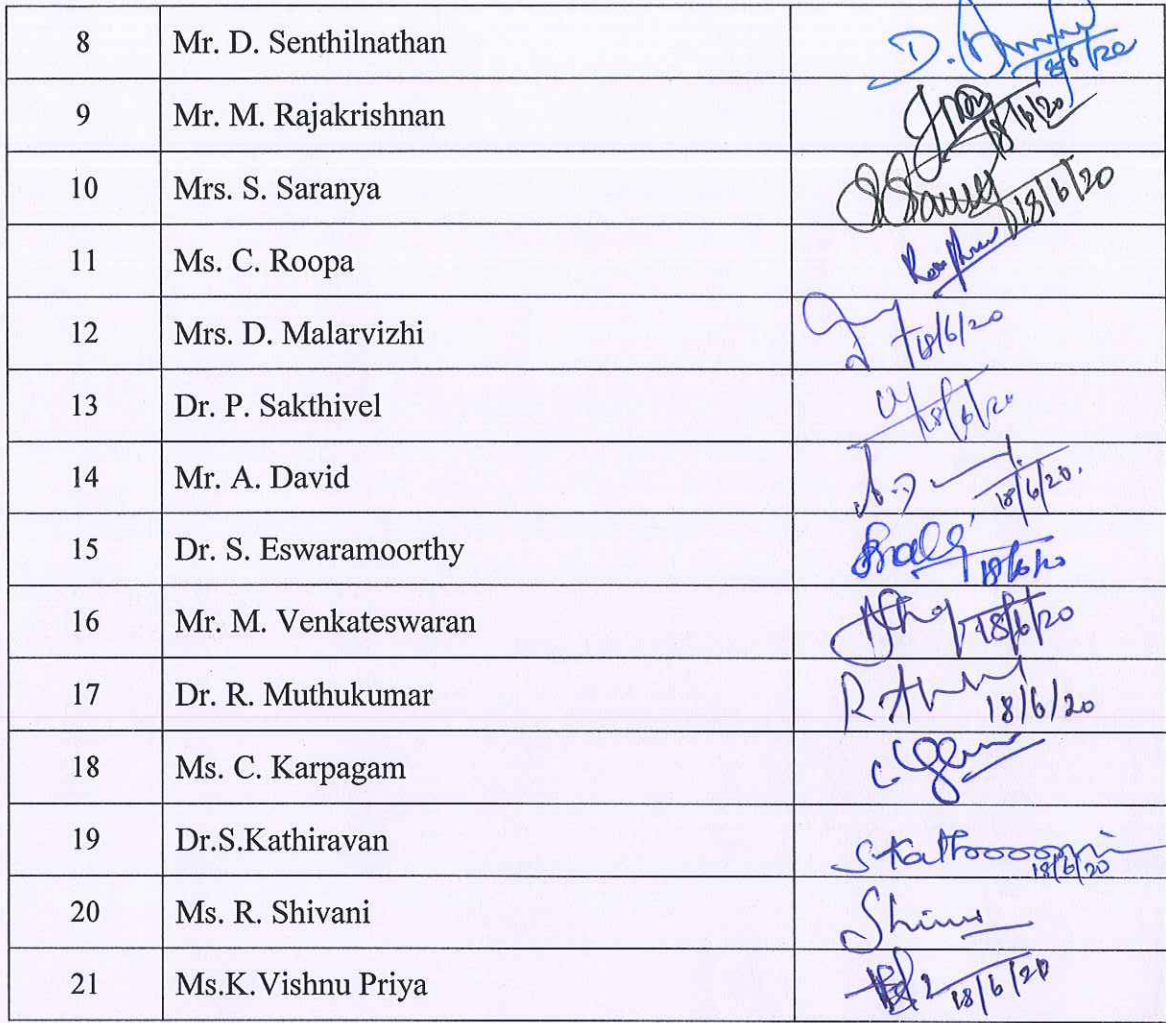 8 Mr. D. Senthilnathan D. 18/6/20
9 Mr. M. Rajakrishnan 18/6/20
10 Mrs. S. Saranya 18/6/20
11 Ms. C. Roopa
12 Mrs. D. Malarvizhi 18/6/20
13 Dr. P. Sakthivel 18/6/20
14 Mr. A. David 18/6/20.
15 Dr. S. Eswaramoorthy 18/6/20
16 Mr. M. Venkateswaran 18/6/20
17 Dr. R. Muthukumar R. 18/6/20
18 Ms. C. Karpagam C.
19 Dr.S.Kathiravan 18/6/20
20 Ms. R. Shivani
21 Ms.K.Vishnu Priya 18/6/20